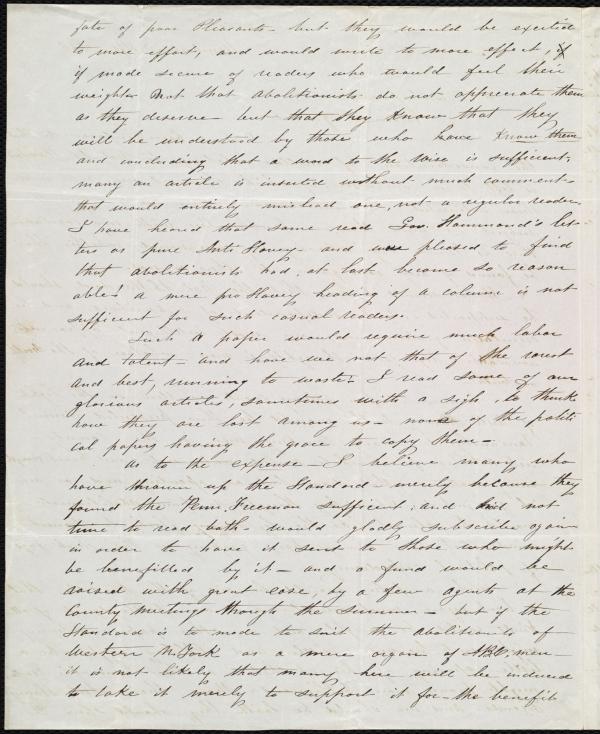 fate of poor Pleasants – but they would be excited
to more effort, and would write to more effect, if
if made secure of readers who would feel their
weight – Not that abolitionists do not appreciate them
as they deserve – but that they know that they
will be understood by those who have know them
and concluding that a word to the wise is sufficient,
many an article is inserted without much comment –
that would entirely mislead one, not a regular reader.
I have heard that some read Gov. Hammond's let-
ters as pure Anti Slavery – and were pleased to find
that abolitionists had, at last become so reason
able! a mere pro Slavery heading of a column is not
sufficient for such casual readers.
Such a paper would require much labor
and talent – and have we not that of the rarest
and best, running to waste? I read some of our
glorious articles, sometimes with a sigh, to think
how they are lost among us – none of the politi
cal papers having the grace to copy them –
As to the expense – I believe many who
have thrown up the Standard – merely because they
found the Penn. Freeman sufficient; and had not
time to read both – would gladly subscribe again
in order to have it sent to those who might
be benefitted by it – and a fund would be
raised with great ease, by a few agents at the
County meetings though the summer – but if the
Standard is to made to suit the abolitionists of
Western N. York as a mere organ of A B C, men –
it is not likely that many here will be induced
to take it merely to support it for – the benefit